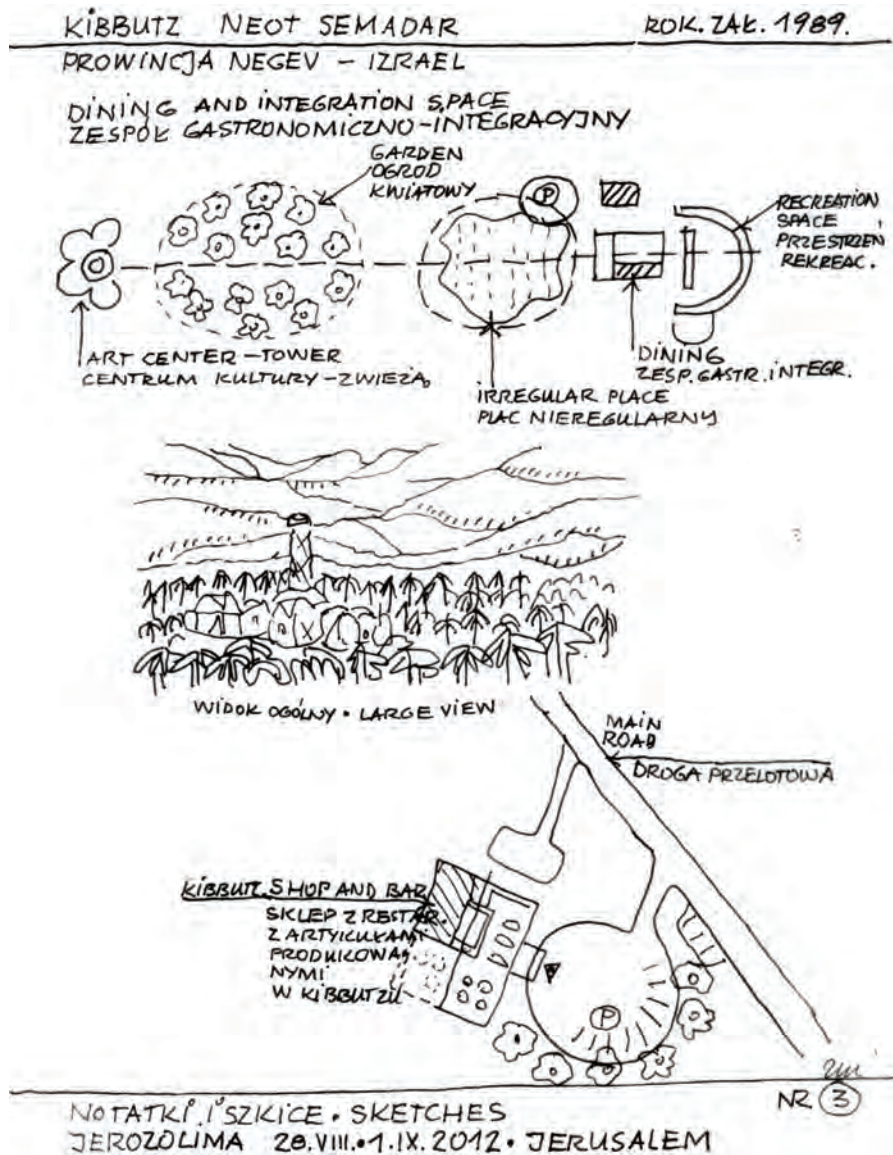 KIBBUTZ NEOT SEMADAR
ROK. ZAŁ. 1989.
PROWINCJA NEGEV – IZRAEL
DINING AND INTEGRATION SPACE
ZESPÓŁ GASTRONOMICZNO-INTEGRACYJNY
GARDEN
OGROD
KWIATOWY
P
RECREATION
SPACE
PRZESTRZEŃ
REKREAC.
ART CENTER – TOWER
CENTRUM KULTURY – ZWIEŻA
DINING
ZESP. GASTR. INTEGR.
IRREGULAR PLACE
PLAC NIEREGULARNY
WIDOK OGÓLNY • LARGE VIEW
MAIN
ROAD
DROGA PRZELOTOWA
KIBBUTZ SHOP AND BAR
SKLEP Z RESTAR.
Z ARTYKUŁAMI
PRODUKOWA-
NYMI
W KIBBUTZU
P
NR 3
NOTATKI I SZKICE • SKETCHES
JEROZOLIMA 28.VIII.•1.IX.2012 • JERUSALEM